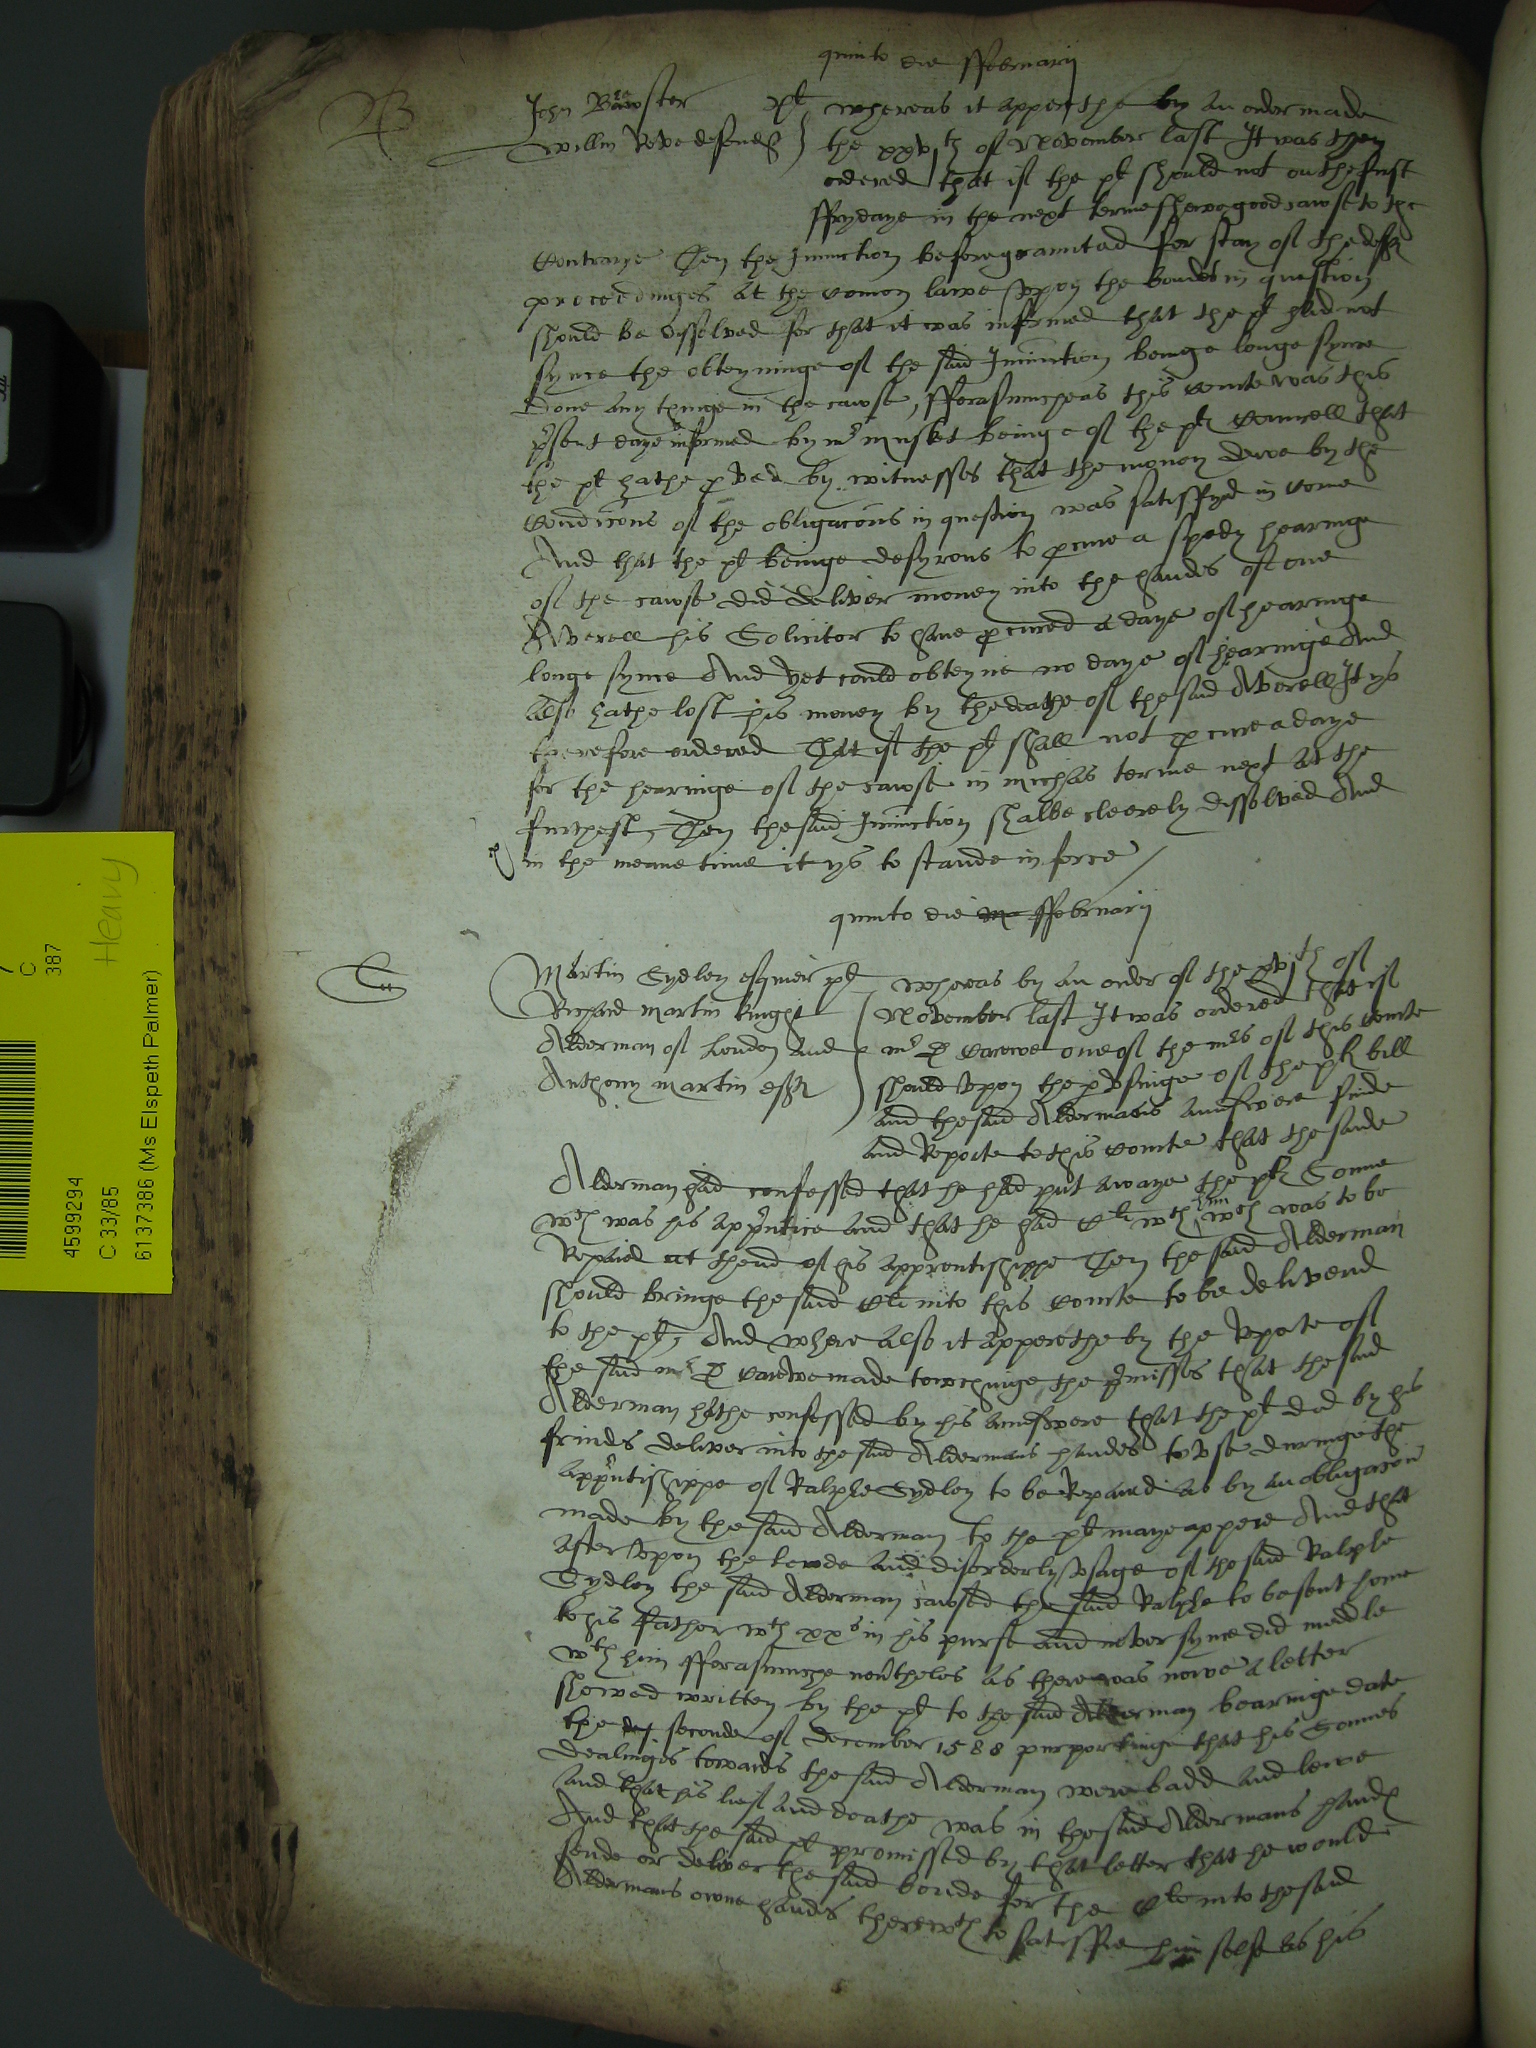 quinto die ffebruarij
B
John Brewster plt
Willm Reve defendt
whereas it apperethe by an order made
the xxvjth of November last It was then
ordered that if the plt should not on the first
ffrydaye in the next terme shewe good cawse to the
Contrarye Then the Iniunction before graunted for stay of the defts
proceedinges at the comon lawe upon the bondes in question
should be dissolved for that it was informed that the plt had not
synce the obteyninge of the said Iniunction beinge longe synce
done any thinge in the cawse, fforasmuche as this courte was this
psent daye informed by mr musket beinge of the plts Councell that
the plt hathe pved by witnesses that the money dewe by the
Condicons of the obligacons in question was satisffyed in some
And that the plt beinge desyrous to pcure a spedy hearinge
of the cawse did deliver money into the handes of one
Averell his Solicitor to have pcured a daye of hearinge
longe synce And yet could obteyne no daye of hearinge And
also hathe lost his money by the deathe of the said Averell It ys
therefore ordered That if the plt shall not pcure a daye
for the hearinge of the cawse in michas terme next at the
furthest, Then the said Iniunction shalbe cleerely dissolved And
in the meane time it ys to stande in force
quinto die ffebruarij
Martin Sydley esquier plt
Richard Martin knight
Alderman of London and
Anthony Martin
defts
whereas by an order of the xvjth of
November last It was ordered that if
mr D Carewe one of the mrs of this courte
should upon the pusinge of the plts bill
and the said Aldermans aunswere finde
and Reporte to this courte that the saide
Alderman had confessed that he had put awaye the plts Sonne
wch was his apprntice and that he had Cli wth him wch was to be
Repaied at thend of his apprentishippe Then the said Alderman
should bringe the said Cli into this courte to be delivered
to the plt, And where also it apperethe by the Reporte of
the said mr D Carewe made towchinge the pmisses that the said
Alderman hathe confessed by his aunswere that the plt did by his
frinds deliver into the said Aldermans handes to use duringe the
apprntishippe of Ralphe Sydley to be Repaied as by an obligacion
made by the said Alderman to the plt maye appere And that
after upon the lewde and disorderly usage of the said Ralphe
Sydley the said Alderman cawsed the said Ralphe to be sent home
to his father wth xxs in his purse and never synce did meddle
wth him fforasmuche neutheles as there was nowe a letter
shewed written by the plt to the said Alderman bearinge date
the seconde of december 1588 purportinge that his Sonnes
dealinges towards the said Alderman were badd and lewe
and that his lief and deathe was in the said Aldermans hands
And that the said plt promissed by that letter that he would
sende or deliver the said bonde for the Cli into the said
Aldermans owne hands therewth to satisffie him selfe as his
7
C
387
Heavy
4599294
C 33/85
6137386 (Ms Elspeth Palmer)